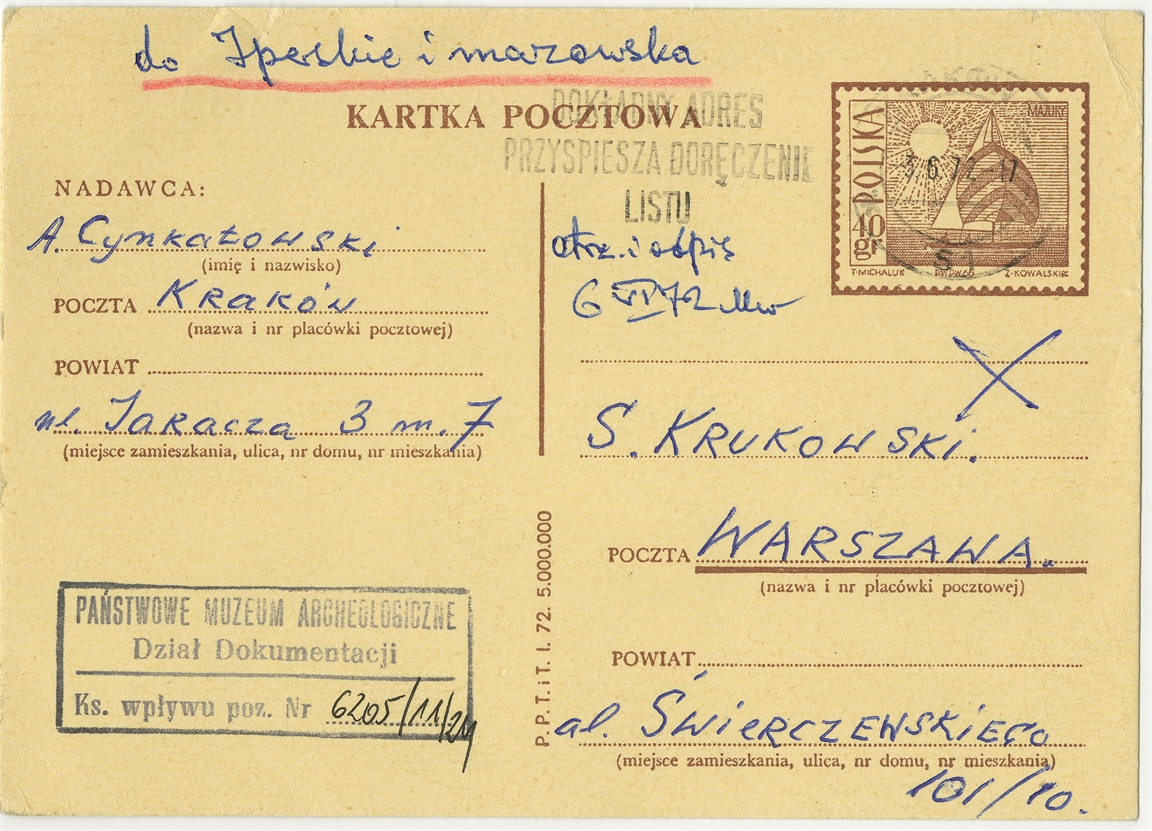 do Iperskie i mazowska
KARTKA POCZTOWA
DOKŁADNY ADRES
PRZYSPIESZA DORĘCZENIE
LISTU
POLSKA
40
gr
MAZURY
3.6.72-17
T·MICHALUK PWPW 66 Z·KOWALSKI
NADAWCA:
A. Cynkałowski
(imię i nazwisko)
POCZTA Kraków
(nazwa i nr placówki pocztowej)
POWIAT
ul. Jaracza 3 m. 7
(miejsce zamieszkania, ulica, nr domu, nr mieszkania)
otrz. i odpis
6 VI 72
S. KRUKOWSKI.
POCZTA WARSZAWA.
(nazwa i nr placówki pocztowej)
POWIAT
al. ŚWIERCZEWSKIEGO
(miejsce zamieszkania, ulica, nr domu, nr mieszkania)
101/10.
P. P. T. i T. I. 72. 5.000.000
PAŃSTWOWE MUZEUM ARCHEOLOGICZNE
Dział Dokumentacji
Ks. wpływu poz. Nr 6205/11/21